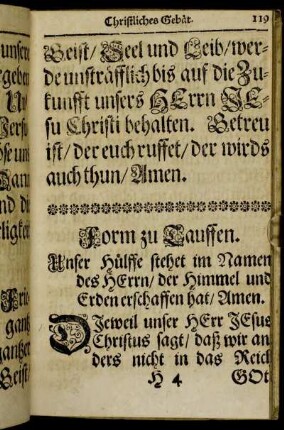 Christliches Gebät. 119
Geist/ Seel und Leib/ wer-
de unsträfflich bis auf die Zu-
kunfft unsers HErrn JE-
su Christi behalten. Getreu
ist/ der euch ruffet/ der wirds
auch thun/ Amen.
Form zu Tauffen.
Unser Hülffe stehet im Namen
des HErrn/ der Himmel und
Erden erschaffen hat/ Amen.
DJeweil unser HErr JEsus
Christus sagt/ daß wir an-
ders nicht in das Reich
H 4 GOt